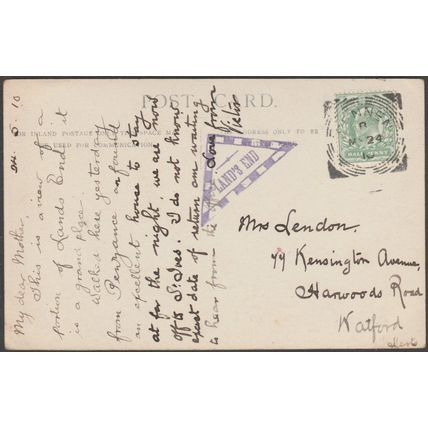 POST CARD.
FOR INLAND POSTAGE ONLY THIS SPACE MAY ADDRESS ONLY TO BE
USED FOR COMMUNICATION
24.5.10
My dear Mother.
This is a view of a
portion of Lands End it
is a grand place.
Walked here yesterday
from Penzance and found
an excellent house to stay
at for the night we are now
off to St. Ives. I do not know
exact date of return am waiting
to hear from Love from
LAND'S END
HALFPENNY
24
Mrs Lendon.
77 Kensington Avenue,
Harwoods Road
Watford
Herts